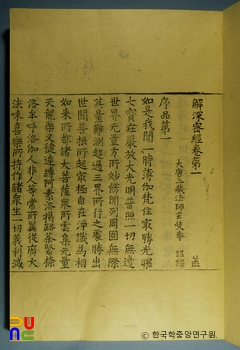 解深密經卷第一
大唐三藏法師玄奘奉 詔譯
序品第一
如是我聞一時薄伽梵住最勝光曜
七寶莊嚴放大光明普照一切無邊
世界無量方所妙飾間列周圓無際
其量難測超過三界所行之處勝出
世間善根所起最極自在淨識為相
如來所都諸大菩薩眾所雲集無量
天龍藥叉健達縛阿素洛揭路荼緊捺
洛牟呼洛伽人非人等常所翼從廣大
法味喜樂所持作諸眾生一切義利滅
ⓒ 한국학중앙연구원.